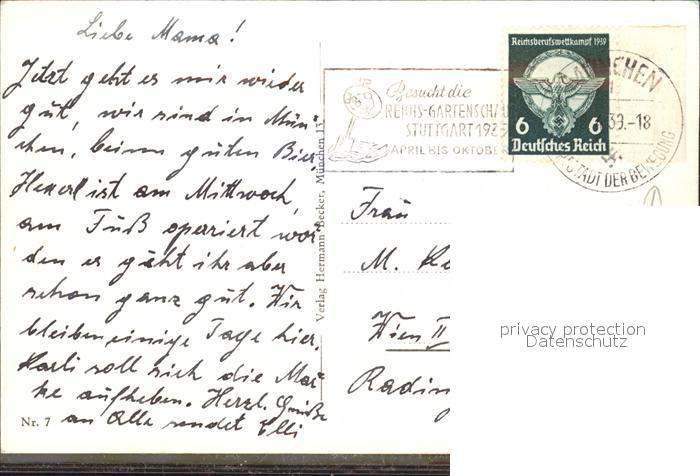 Liebe Mama!
Jetzt geht es mir wieder
gut, wir sind in Mün-
chen, beim guten Bier
Hexerl ist am Mittwoch
am Fuß operriert wor-
den es geht ihr aber
schon ganz gut. Wir
bleiben einige Tage hier,
Karli soll sich die Mar-
ke aufheben. Herzl. Grüße
an Alle sendet Elli
Nr. 7
Verlag Hermann Becker, München 13
Besucht die
REICHS-GARTENSCHAU
STUTTGART 1939
APRIL BIS OKTOBER
Reichsberufswettkampf 1939
6 6
Deutsches Reich
MÜNCHEN
39.-18
HAUPTSTADT DER BEWEGUNG
Frau
M.
Wien II
Radin
privacy protection
Datenschutz